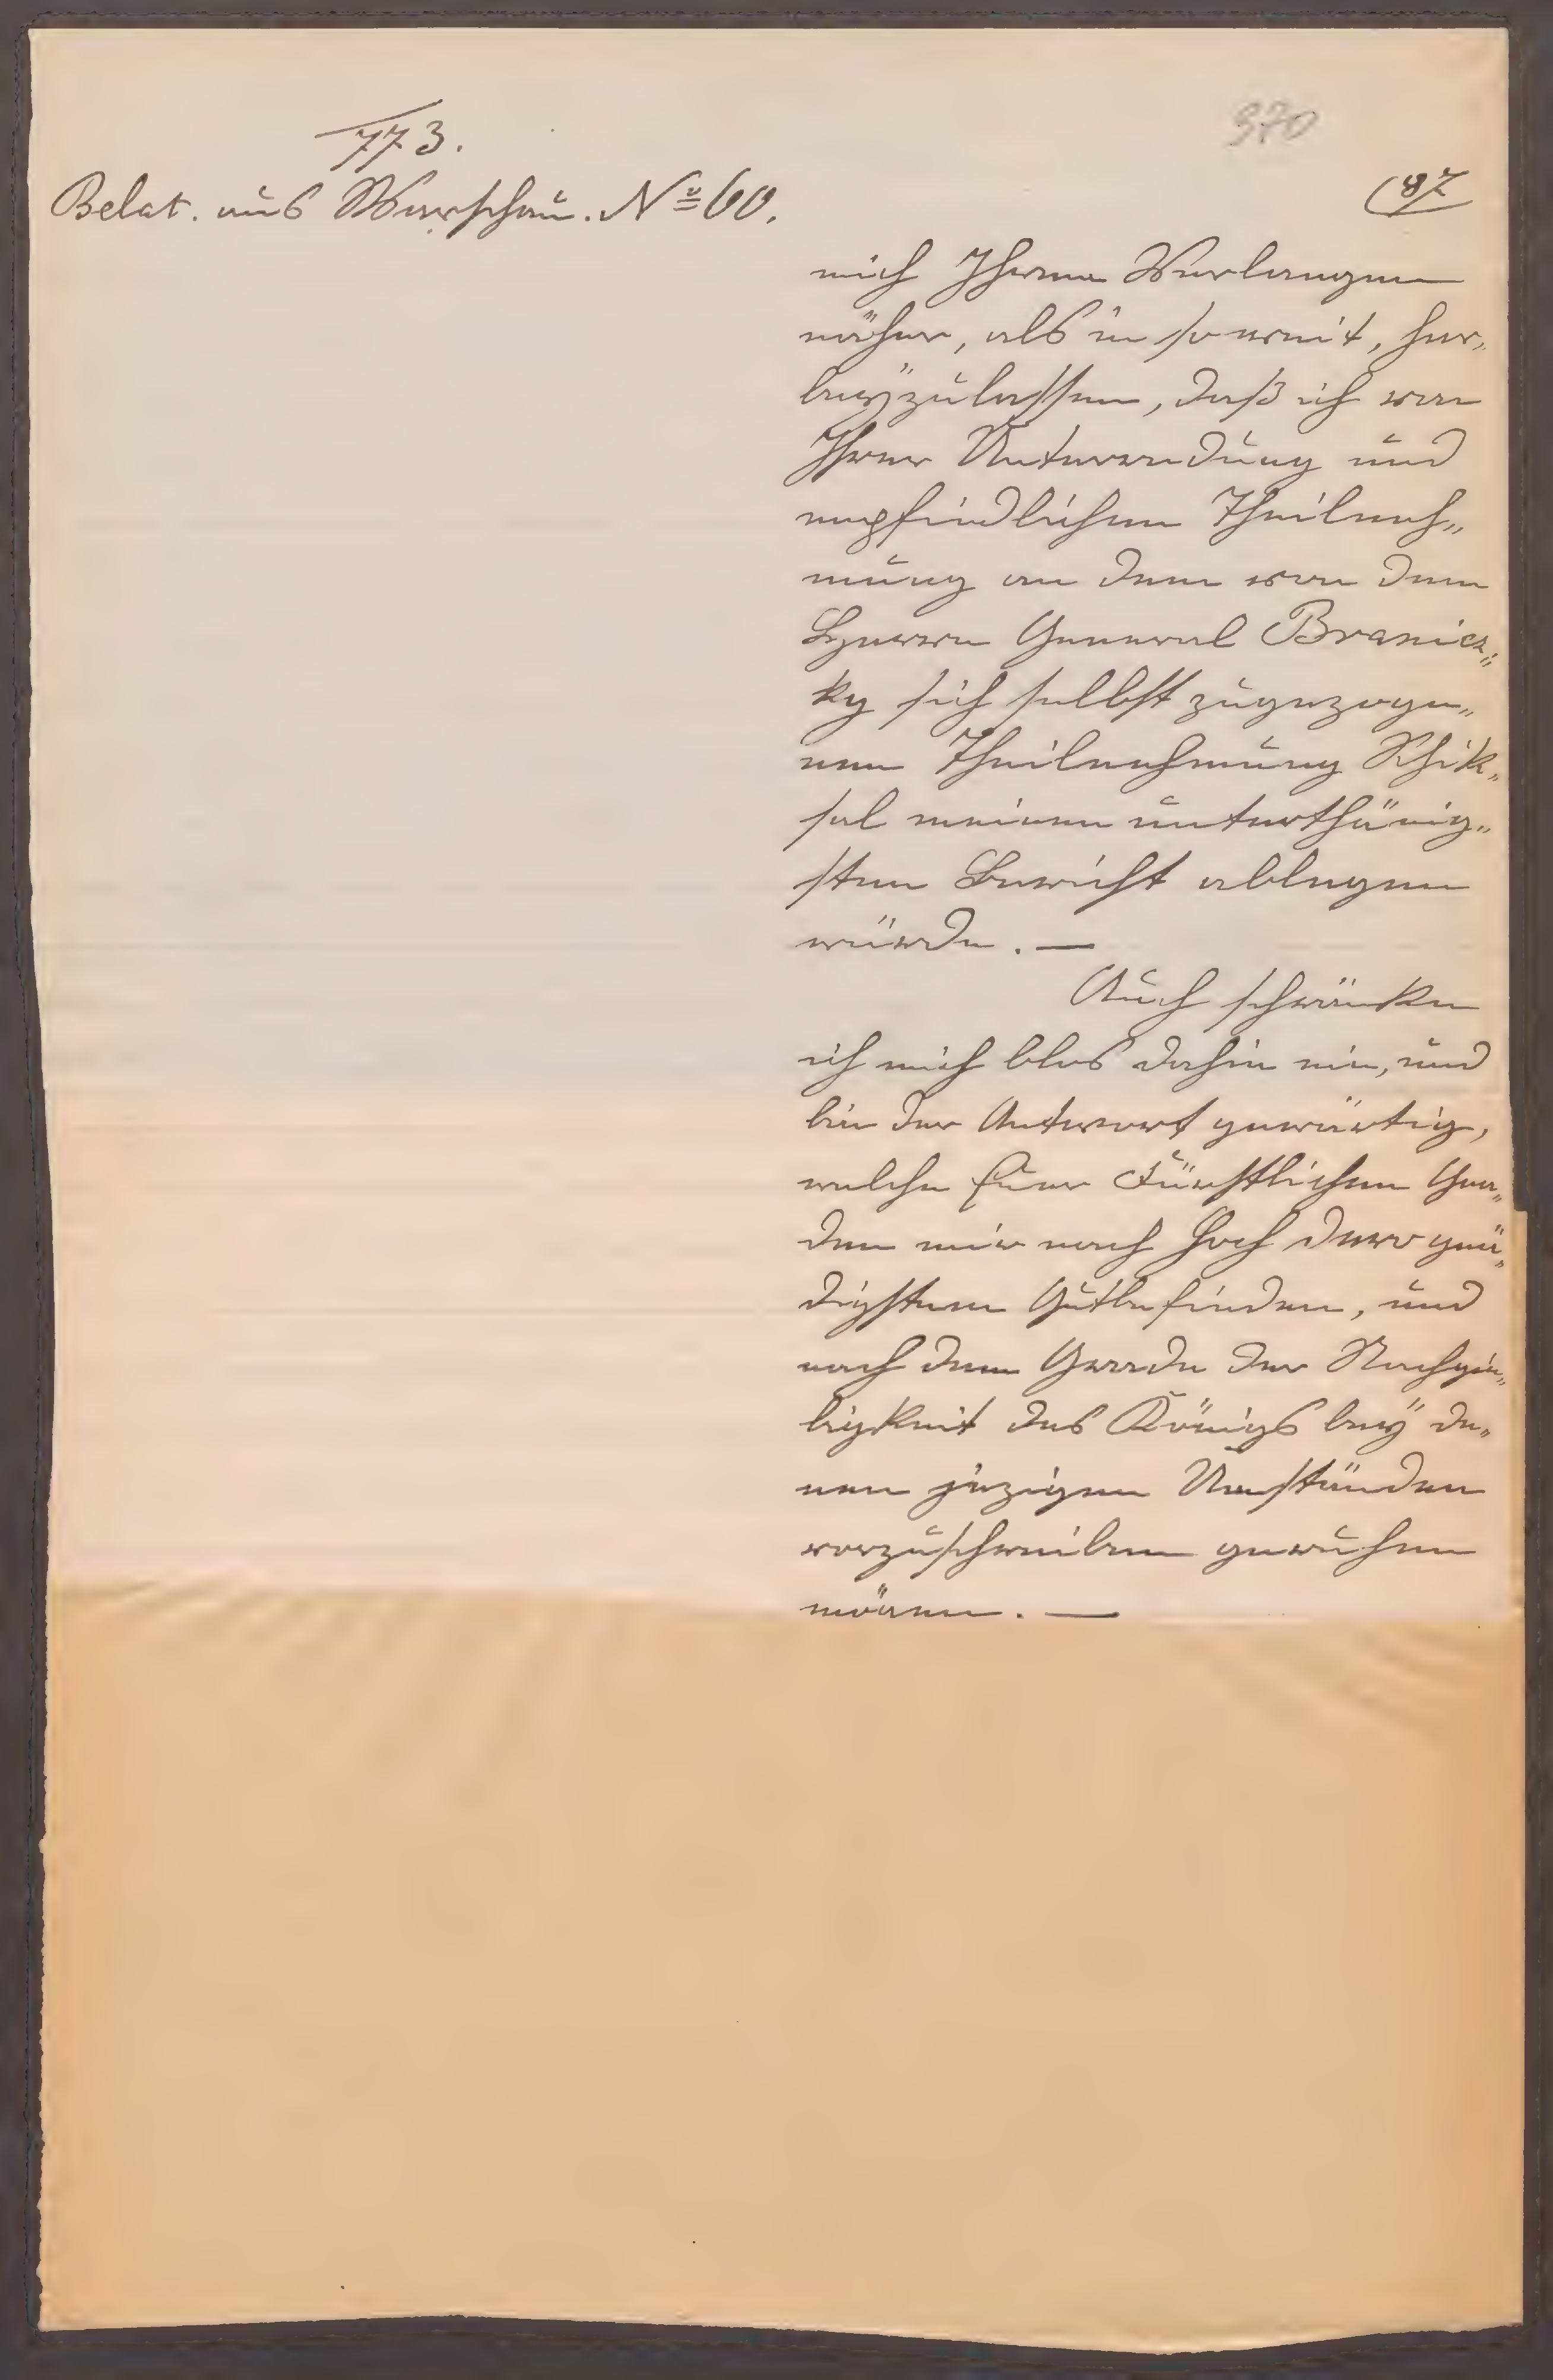 773.
370
Relat. aus Warschau. No 60.
(87
mich Ihrem Verlangen
näher, als in so weit, her„
beyzulassen, daß ich von
Ihrer Unterredung und
empfindlichen Theilneh„
mung an dem von dem
Herrn General Branicz„
ky sich selbst zugezoge„
nen Theilnehmung Schik„
sal meinen unterthänig„
sten Bericht ablegen
würde. —
Auch schränke
ich mich blos dahin ein, und
bin der Antwort gewärtig,
welche Euer Fürstlichen Gna„
den mir nach Hoch Dero gnä„
digstem Gutbefinden, und
nach dem Grade der Nachgie„
bigkeit des Königs bey de„
nen jezigen Umständen
vorzuschreiben geruhen
mögen. —